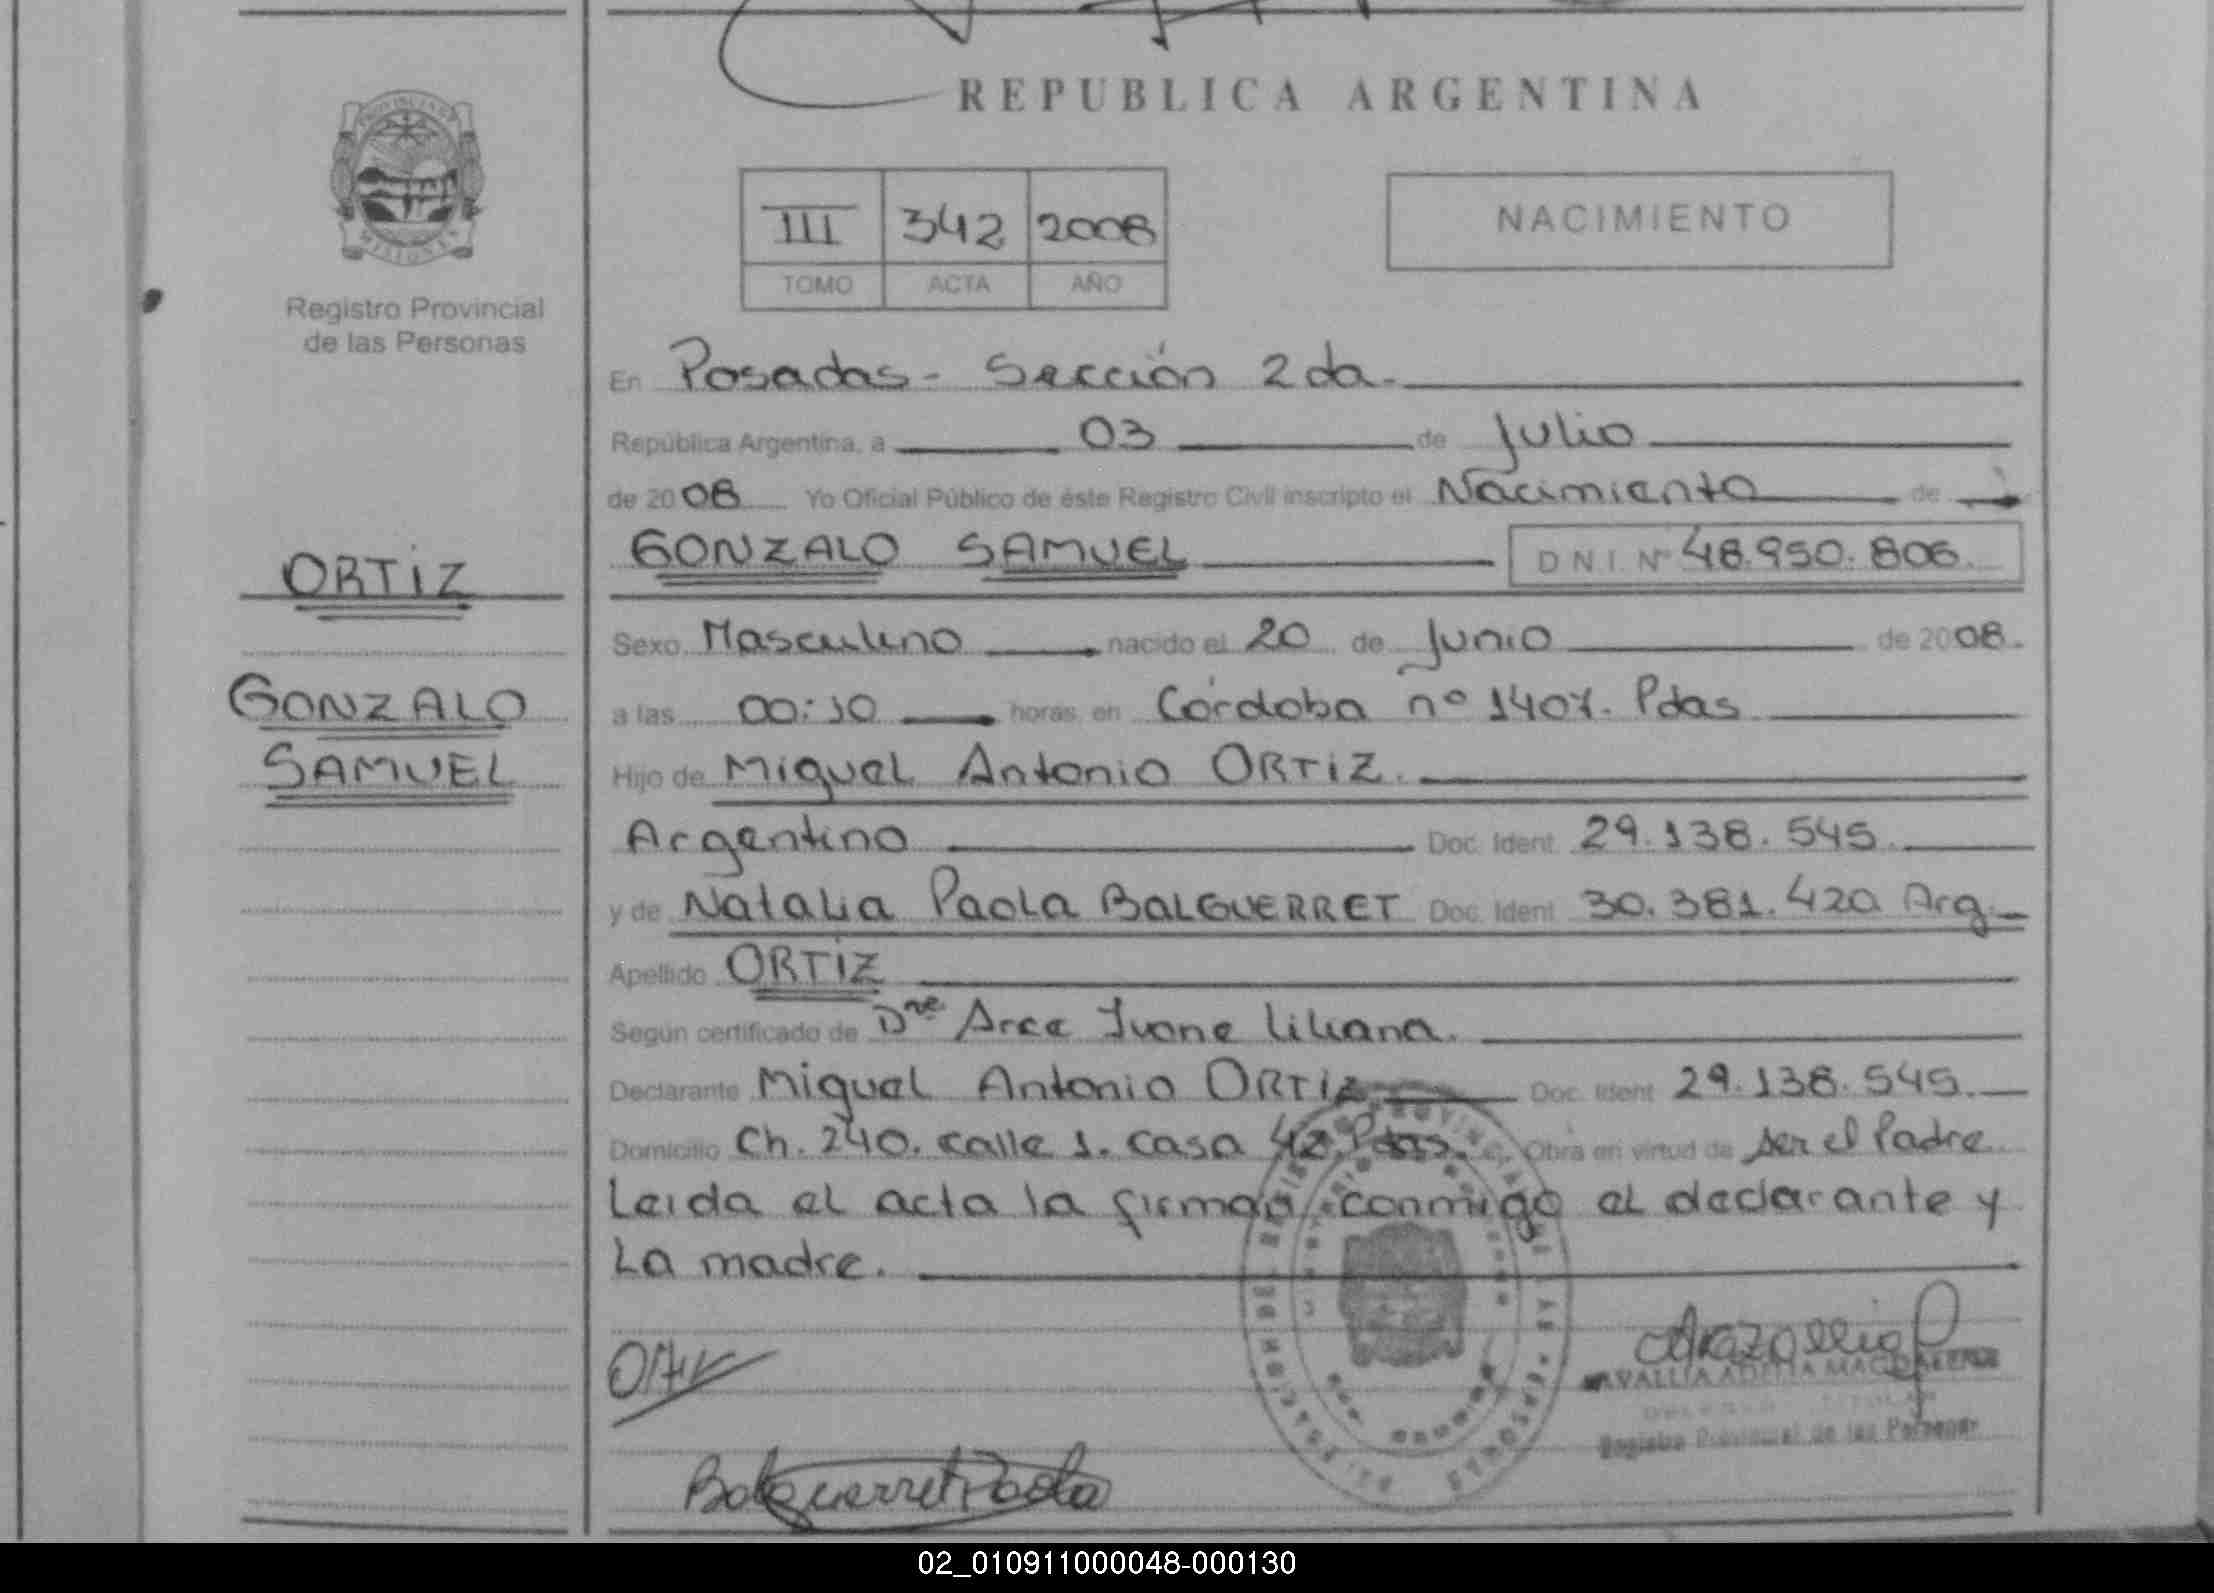 REPUBLICA ARGENTINA
PROVINCIA DE
MISIONES
Registro Provincial
de las Personas
III 342 2008
TOMO ACTA AÑO
NACIMIENTO
En Posadas - Sección 2da.
República Argentina, a 03 de Julio
de 2008 Yo Oficial Público de éste Registro Civil inscripto el Nacimiento de
ORTIZ
GONZALO SAMUEL D.N.I. Nº 48.950.806.
Sexo Masculino nacido el 20 de Junio de 2008.
GONZALO
SAMUEL
a las 00:10 horas, en Córdoba nº 1407. Pdas
Hijo de Miguel Antonio ORTIZ.
Argentino Doc. Ident. 29.138.545.
y de Natalia Paola BALGUERRET Doc. Ident. 30.381.420 Arg.
Apellido ORTIZ
Según certificado de Dra Arce Ivone Liliana.
Declarante Miguel Antonio ORTIZ Doc. Ident. 29.138.545.
Domicilio Ch. 240. calle 1. casa 42. Pdas. Obra en virtud de ser el Padre
Leida el acta la firman conmigo el declarante y
La madre.
Balguerret Paola
ADELIA MAGDALENA
Registro Provincial de las Personas
02_010911000048-000130